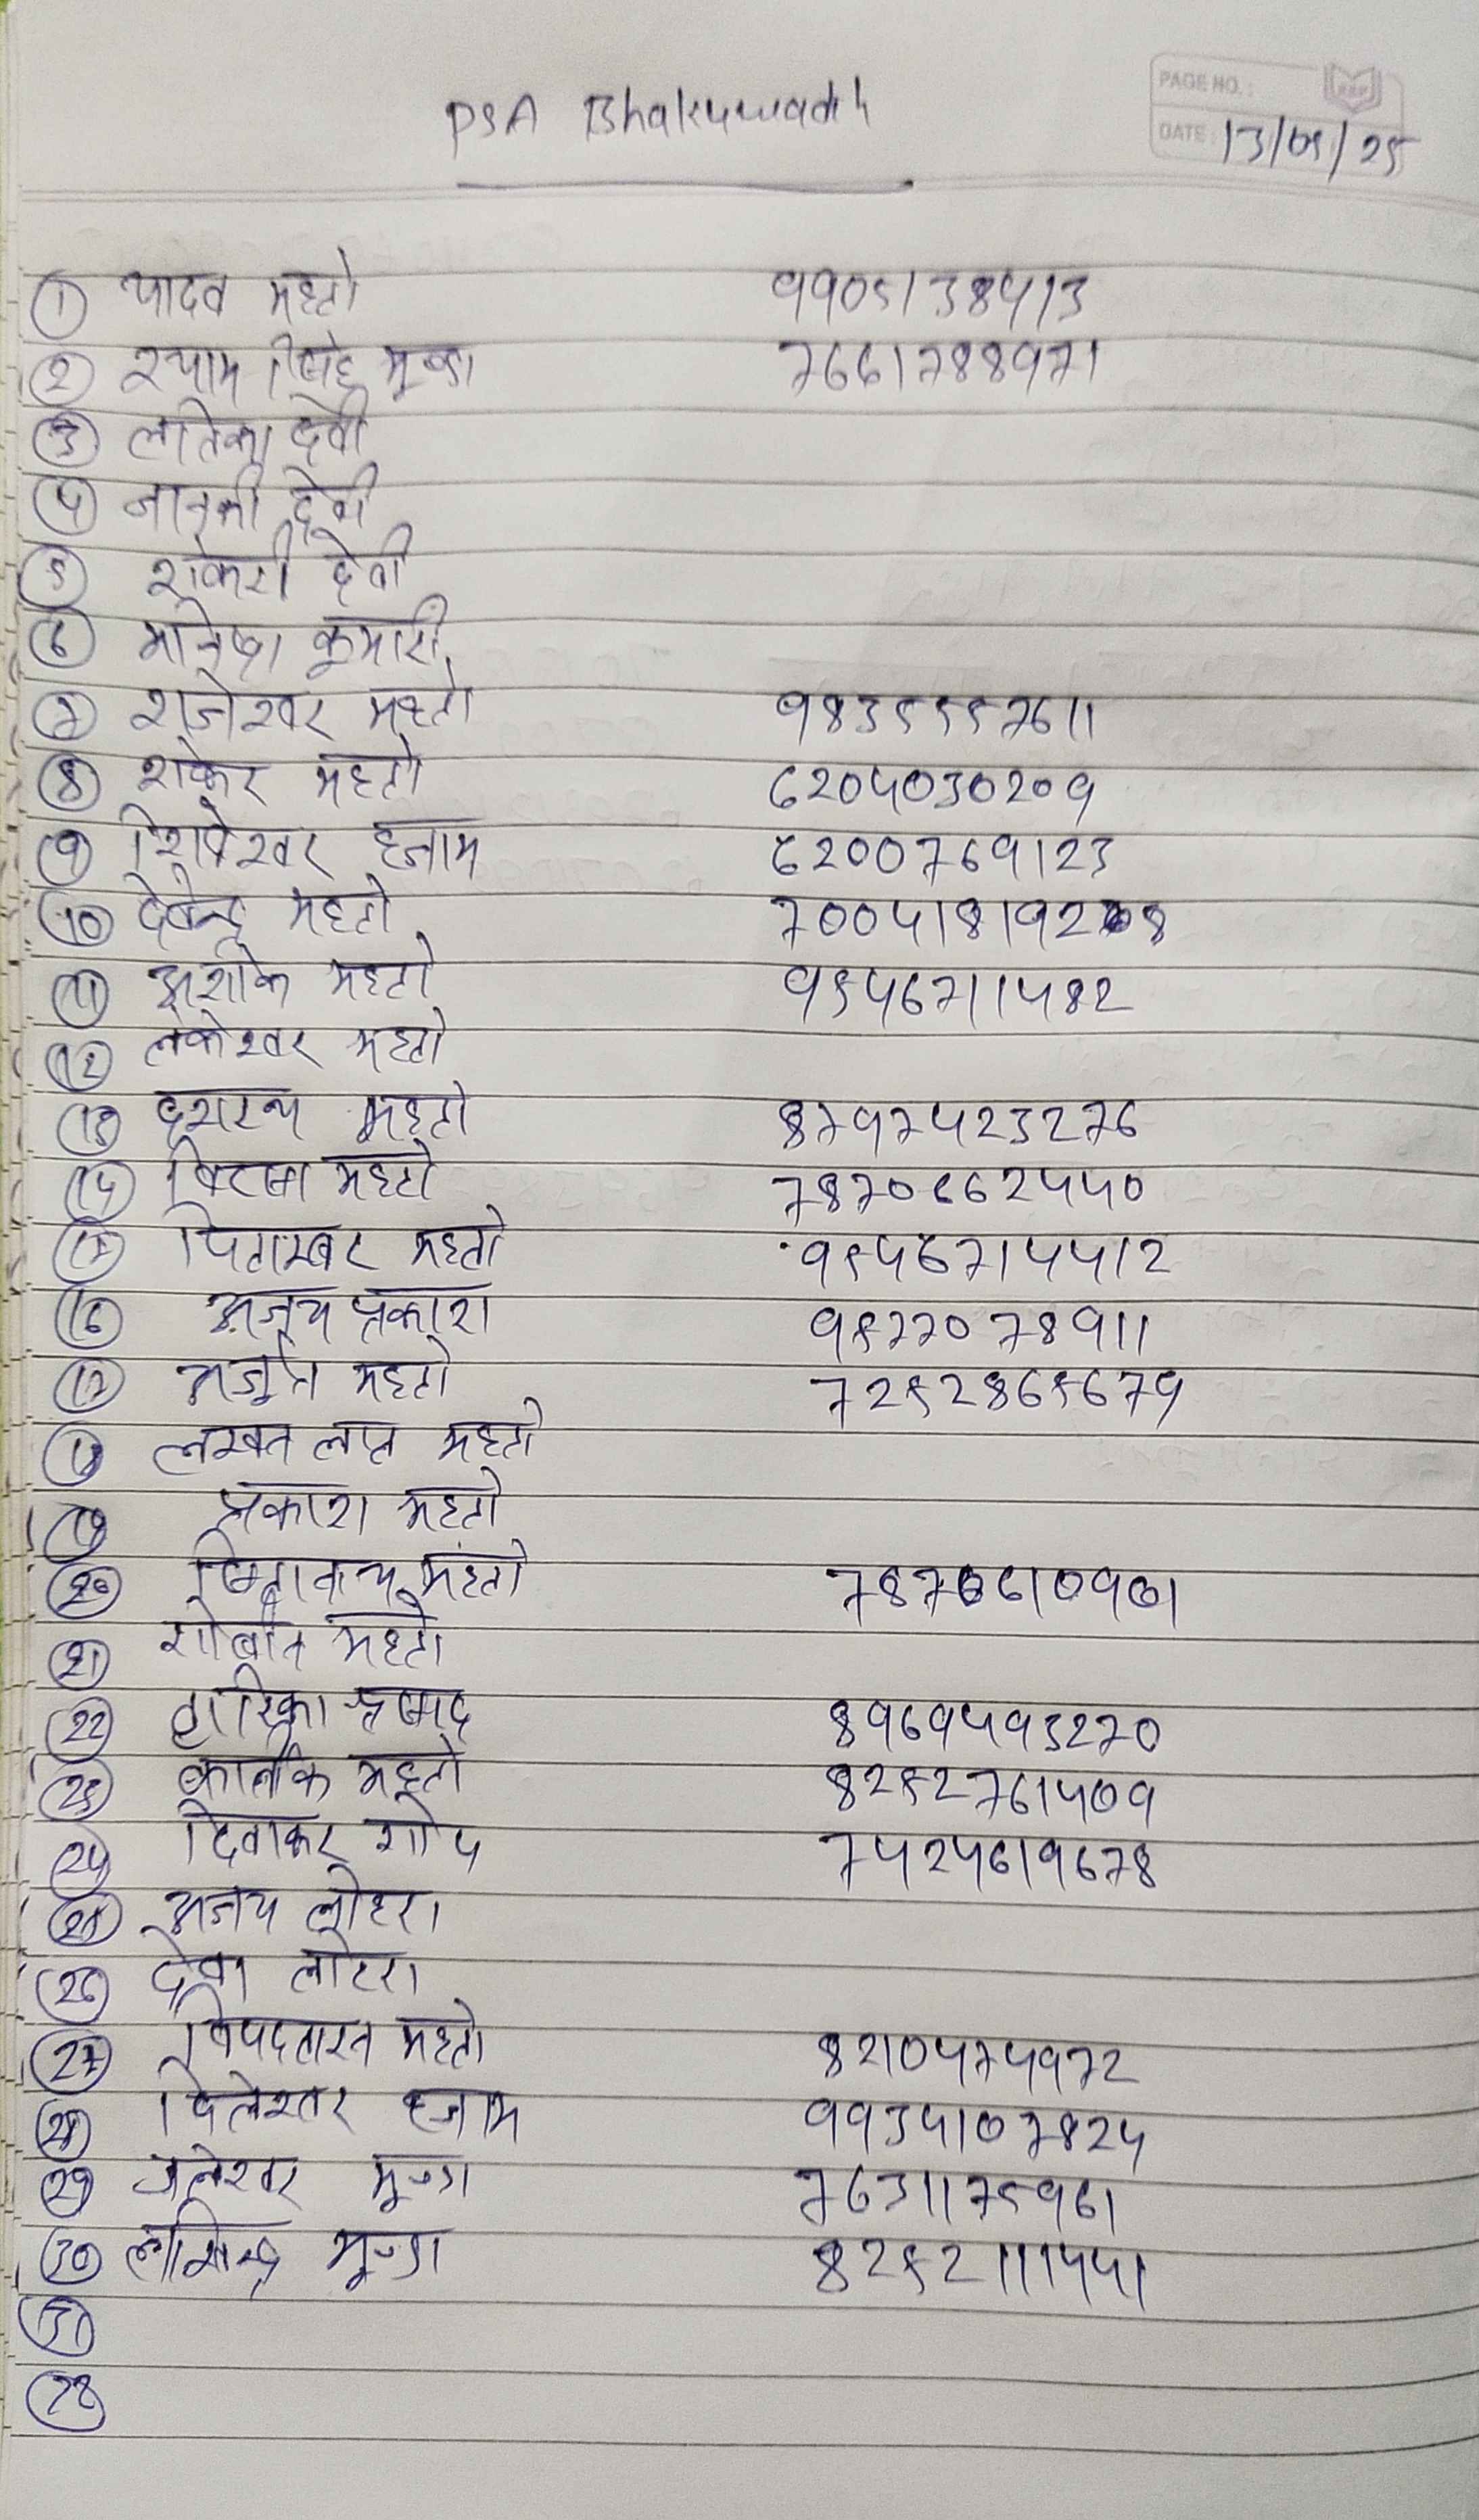 PSA Bhakuwadih
PAGE NO.:
DATE: 13/05/25
① यादव महतो 9905138413
② श्याम सिंह मुण्डा 7661788971
③ लतिका देवी
④ जानकी देवी
⑤ शंकरी देवी
⑥ मनिषा कुमारी
⑦ राजेश्वर महतो 9835557611
⑧ शंकर महतो 6204030209
⑨ शिवेश्वर हजाम 6200769123
⑩ देवेन्द्र महतो
⑪ अशोक महतो 9546711482
⑫ लकेश्वर महतो
⑬ दशरथ महतो 8797423276
⑭ महतो 7870662440
⑮ पिताम्बर महतो 9546714412
⑯ अजय प्रकाश
⑰ अर्जुन महतो 7252865679
⑱ लखन लाल महतो
⑲ प्रकाश महतो
⑳ महतो
㉑ महतो
㉒ द्वारिका प्रसाद 8969493270
㉓ कार्तीक महतो 8252761409
㉔ दिवाकर गोप 7424619678
㉕ अजय लोहरा
㉖ देवा लोहरा
㉗ विपदतारन महतो 8210474972
㉘ दिलेश्वर हजाम 9934107824
㉙ जलेश्वर मुण्डा 7631175961
㉚ मुण्डा 8252111441
㉛